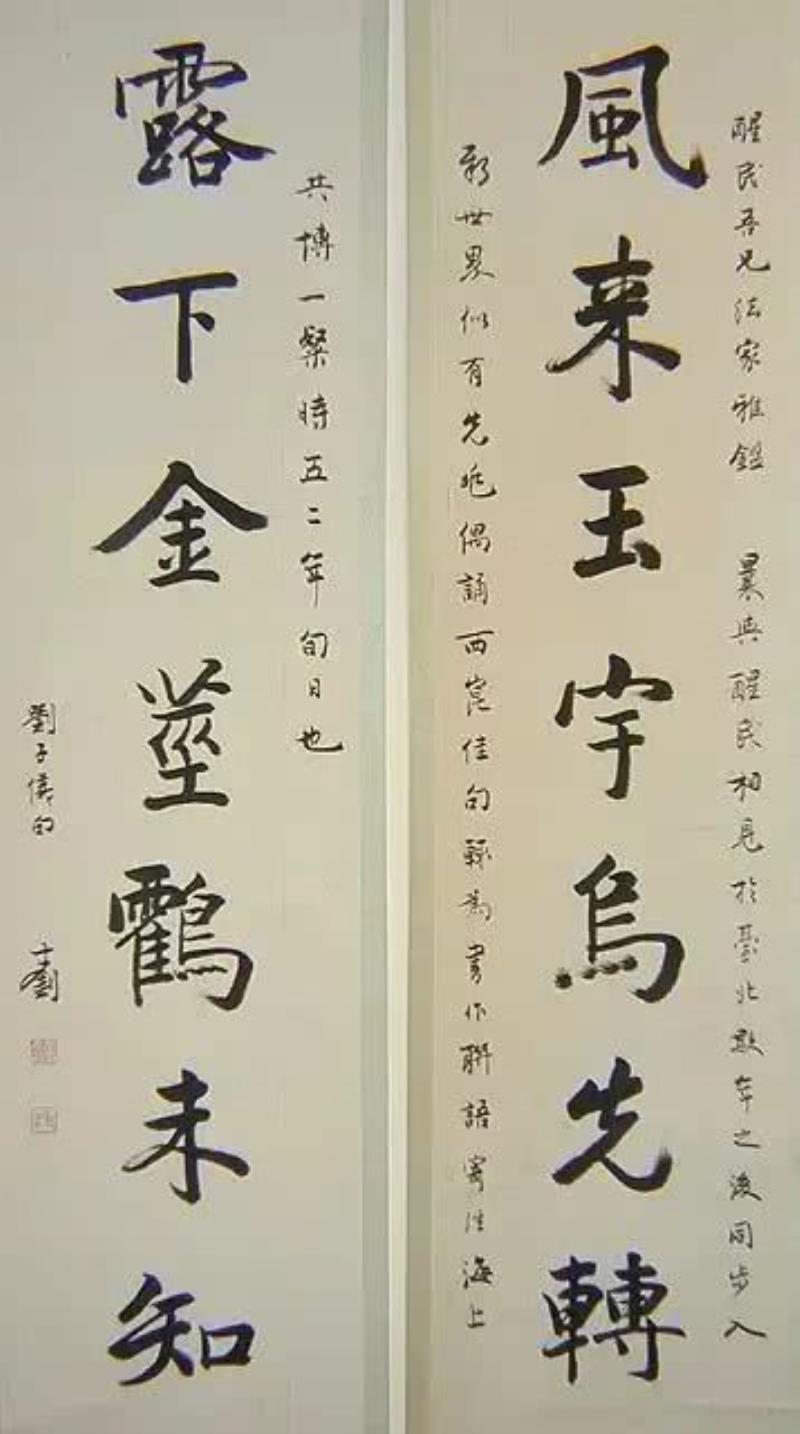 醒民吾兄法家雅鑑 曩與醒民相見於臺北數年之後同步入
風来玉宇烏先轉
新世界似有先兆偶誦西崑佳句錄為書作聯語寄往海上
共博一粲時五二年旬日也
露下金莖鶴未知
劉子儀句 士劉